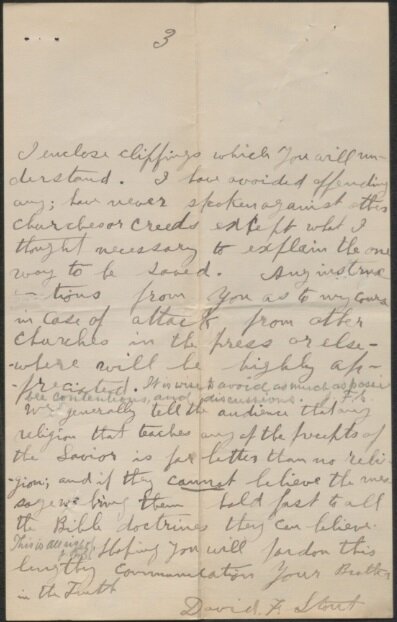 3
I enclose clippings which You will un-
derstand. I have avoided offending
any; have never spoken against other
churches or creeds except what I
thought necessary to explain the one
way to be saved. Any instruc
-tions from You as to my cours
in case of attack from other
churches in the press or else-
-where will be highly ap-
-preciated. It is wise to avoid, as much as possi
ble contentions, and discussions. J. F. S.
We generally tell the audience that any
religion that teaches any of the precepts of
the Savior is far better than no reli-
-gion; and if they cannot believe the mes
sage we bring them hold fast to all
the Bible doctrines they can believe.
This is all right
Hoping You will pardon this
lengthy communication Your Brother
in the Truth
David F. Stout